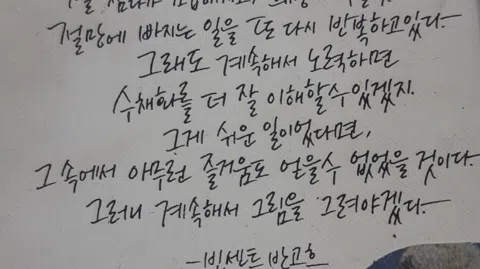 절망에 빠지는 일을 또 다시 반복하고있다
그래도 계속해서 노력하면
수채화를 더 잘 이해할수있겠지.
그게 쉬운 일이었다면,
그 속에서 아무런 즐거움도 얻을수 없었을 것이다.
그러니 계속해서 그림을 그려야겠다
-빈센트 반고흐